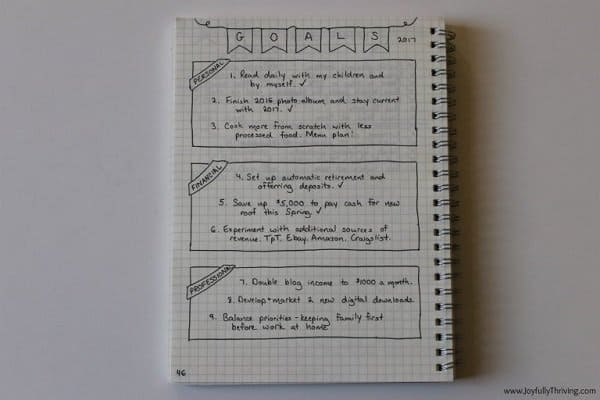 GOALS
2017
PERSONAL
1. Read daily with my children and
by myself. ✓
2. Finish 2015 photo album and stay current
with 2017. ✓
3. Cook more from scratch with less
processed food. Menu plan!
FINANCIAL
4. Set up automatic retirement and
offering deposits. ✓
5. Save up $5,000 to pay cash for new
roof this Spring. ✓
6. Experiment with additional sources of
revenue. TpT. Ebay. Amazon. Craigslist.
PROFESSIONAL
7. Double blog income to $1000 a month.
8. Develop + market 2 new digital downloads.
9. Balance priorities - keeping family first
before work at home
46
www.JoyfullyThriving.com